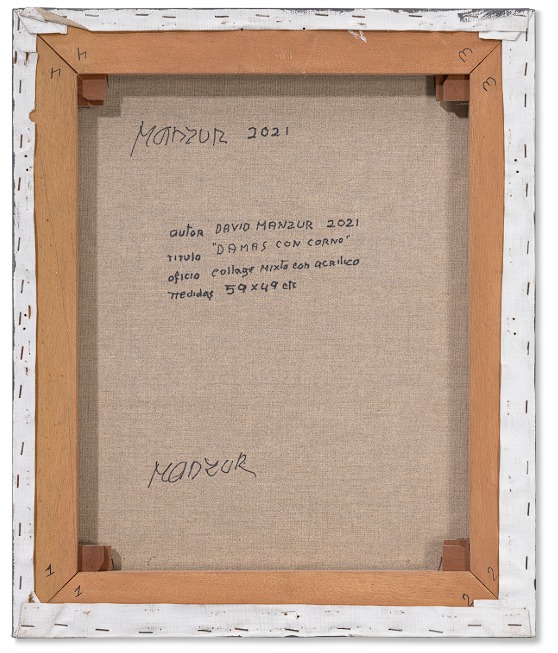 4 4 3 3
MANZUR 2021
autor DAVID MANZUR 2021
titulo "DAMAS CON CORNO"
oficio collage mixto con acrilico
medidas 59 x 49 cts
MANZUR
1 1 2 2